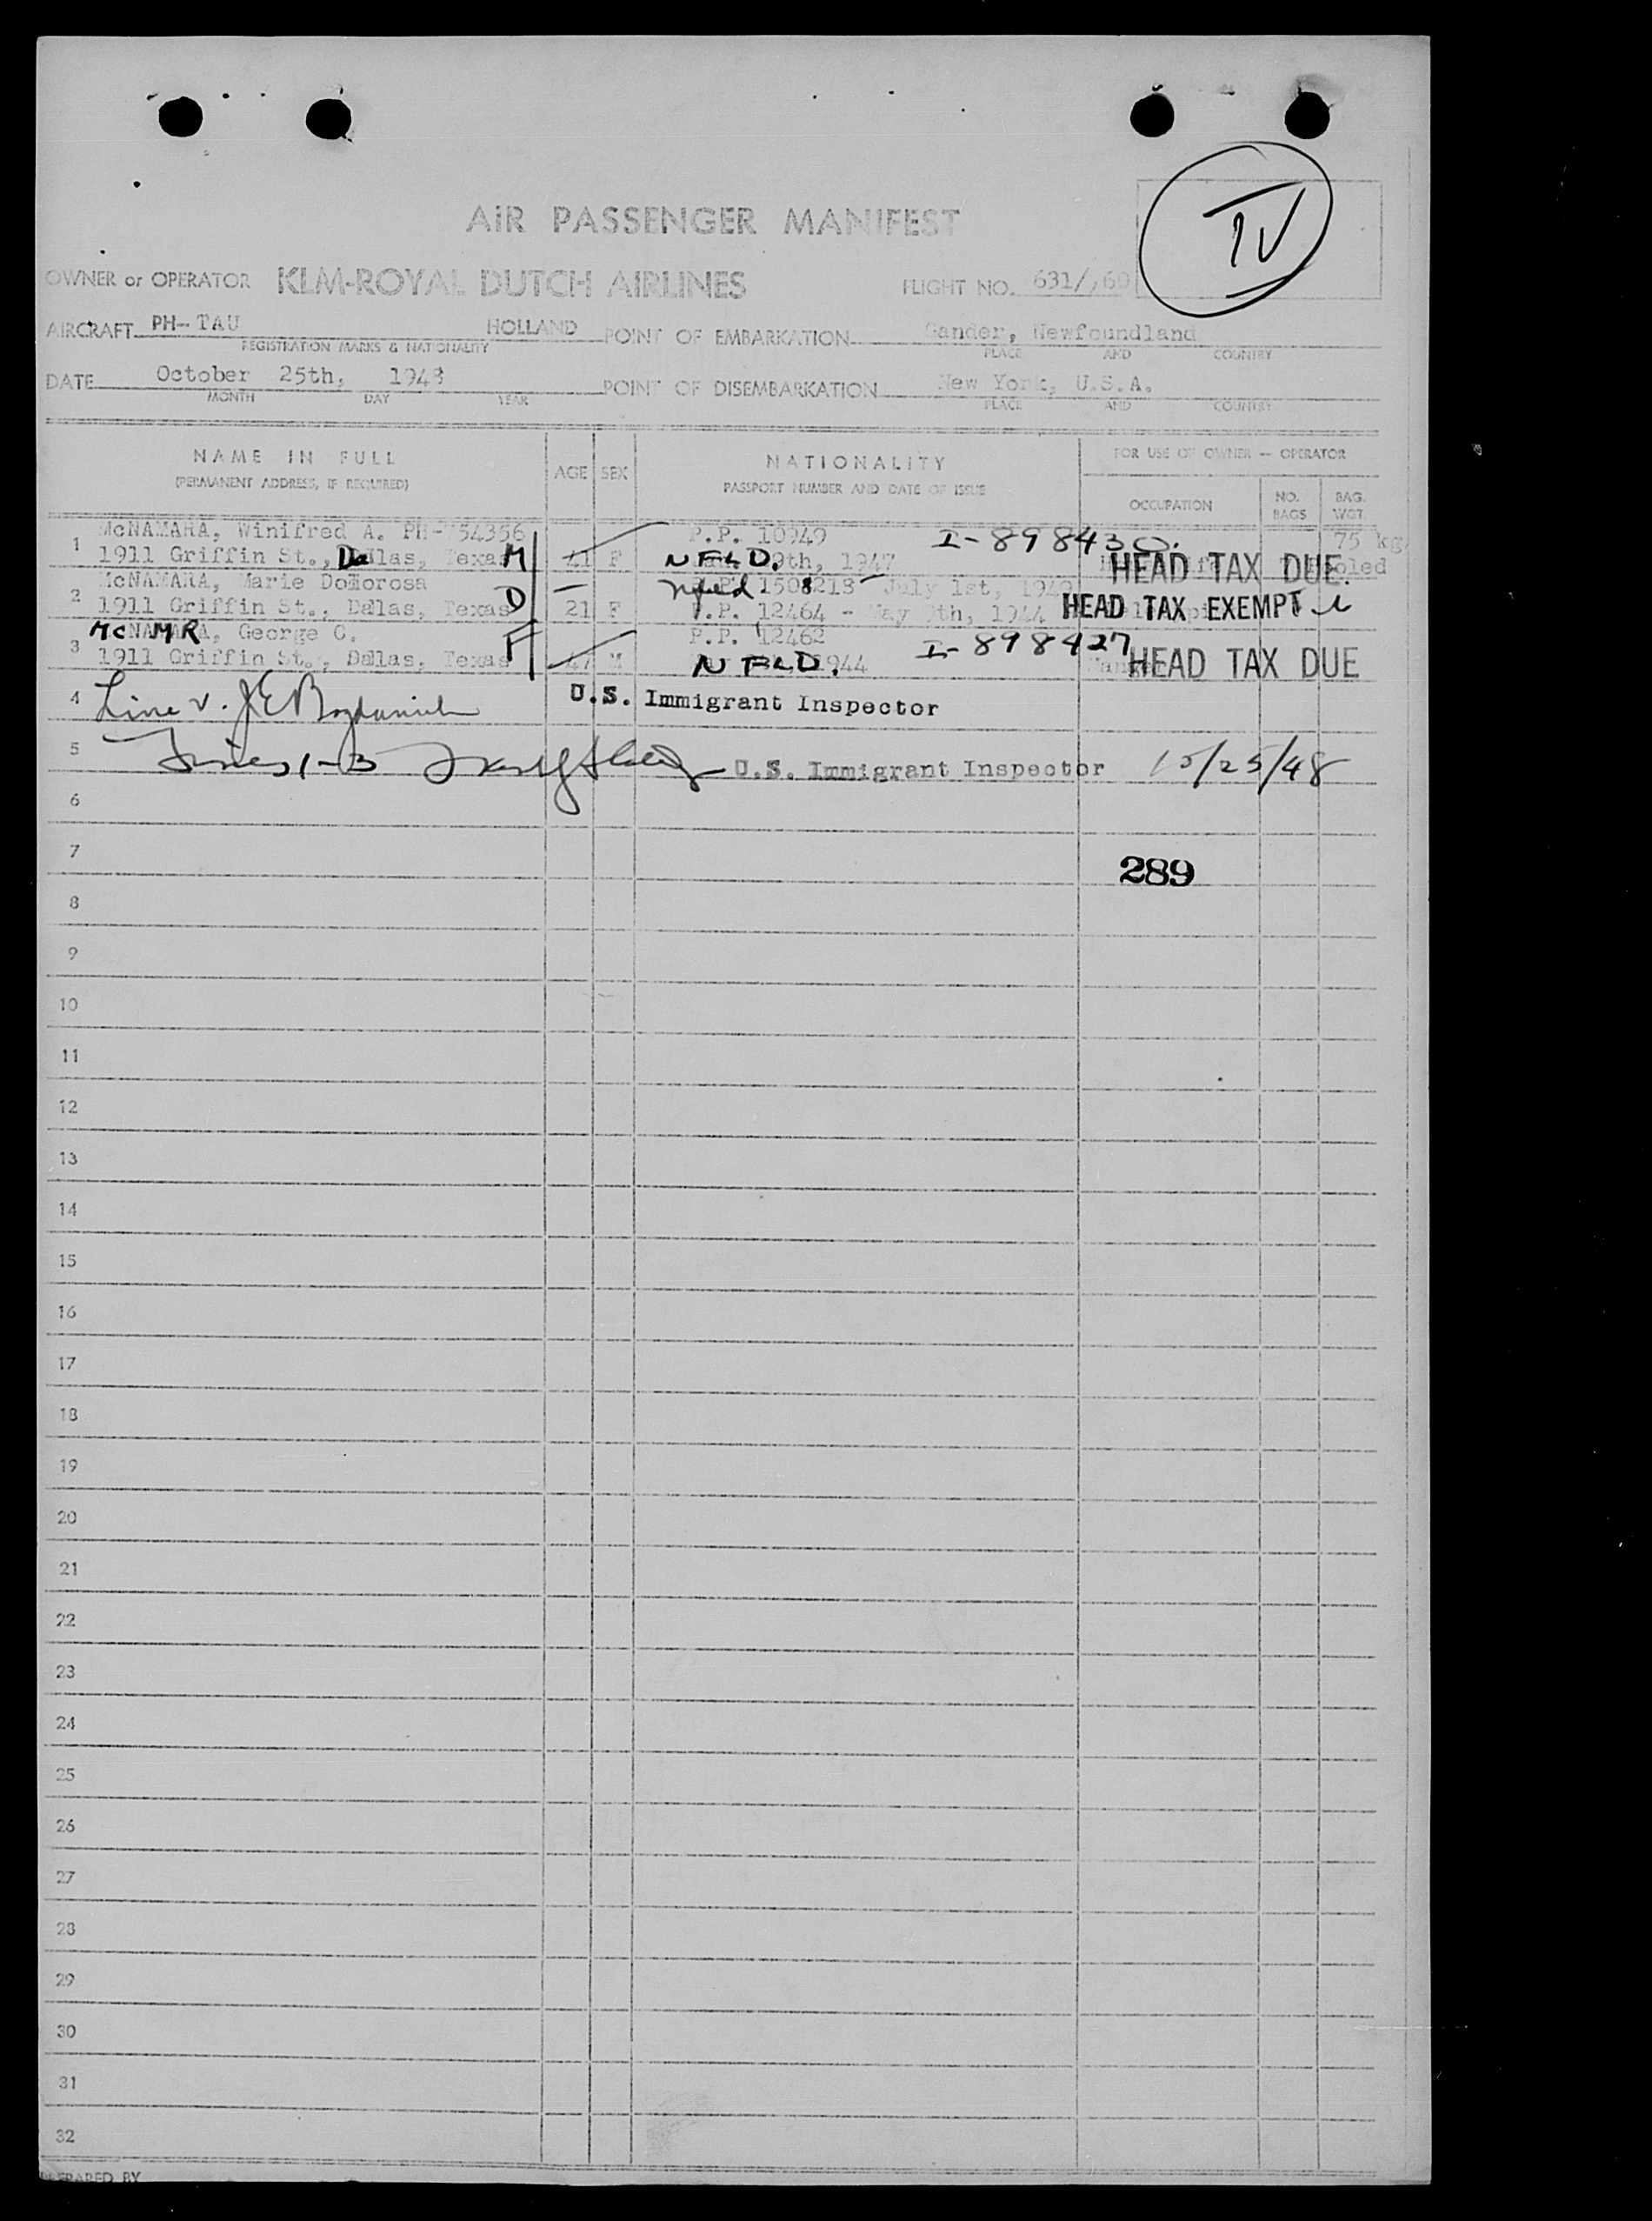 IV
AIR PASSENGER MANIFEST
OWNER or OPERATOR KLM-ROYAL DUTCH AIRLINES FLIGHT NO. 631/,60
AIRCRAFT PH-TAU HOLLAND POINT OF EMBARKATION Gander, Newfoundland
REGISTRATION MARKS & NATIONALITY PLACE AND COUNTRY
DATE October 25th, 1948 POINT OF DISEMBARKATION New York, U.S.A.
MONTH DAY YEAR PLACE AND COUNTRY
NAME IN FULL AGE SEX NATIONALITY FOR USE OF OWNER -- OPERATOR
(PERMANENT ADDRESS, IF REQUIRED) PASSPORT NUMBER AND DATE OF ISSUE OCCUPATION NO. BAGS BAG. WGT.
McNAMARA, Winifred A. PH- 54356 P.P. 10949 I-898430. 75 kg
1 1911 Griffin St., Dallas, Texas M 41 F NFLD. 9th, 1947 HEAD TAX DUE.
McNAMARA, Marie Dolorosa Nfld 1508213 - July 1st,
2 1911 Griffin St., Dallas, Texas D 21 F P.P. 12464 - May 9th, 1944 HEAD TAX EXEMPT
McNAMARA, George C. P.P. 12462 I-898427
3 1911 Griffin St., Dallas, Texas F 47 M NFLD. 1944 HEAD TAX DUE
4 Line U.S. Immigrant Inspector
5 Lines 1-3 U.S. Immigrant Inspector 10/25/48
6
7 289
8
9
10
11
12
13
14
15
16
17
18
19
20
21
22
23
24
25
26
27
28
29
30
31
32
PREPARED BY